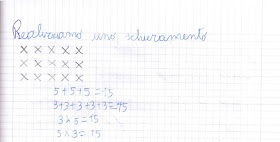 Realizziamo uno schieramento
x x x x x
x x x x x
x x x x x
5+5+5=15
3+3+3+3+3=15
3x5=15
5x3=15